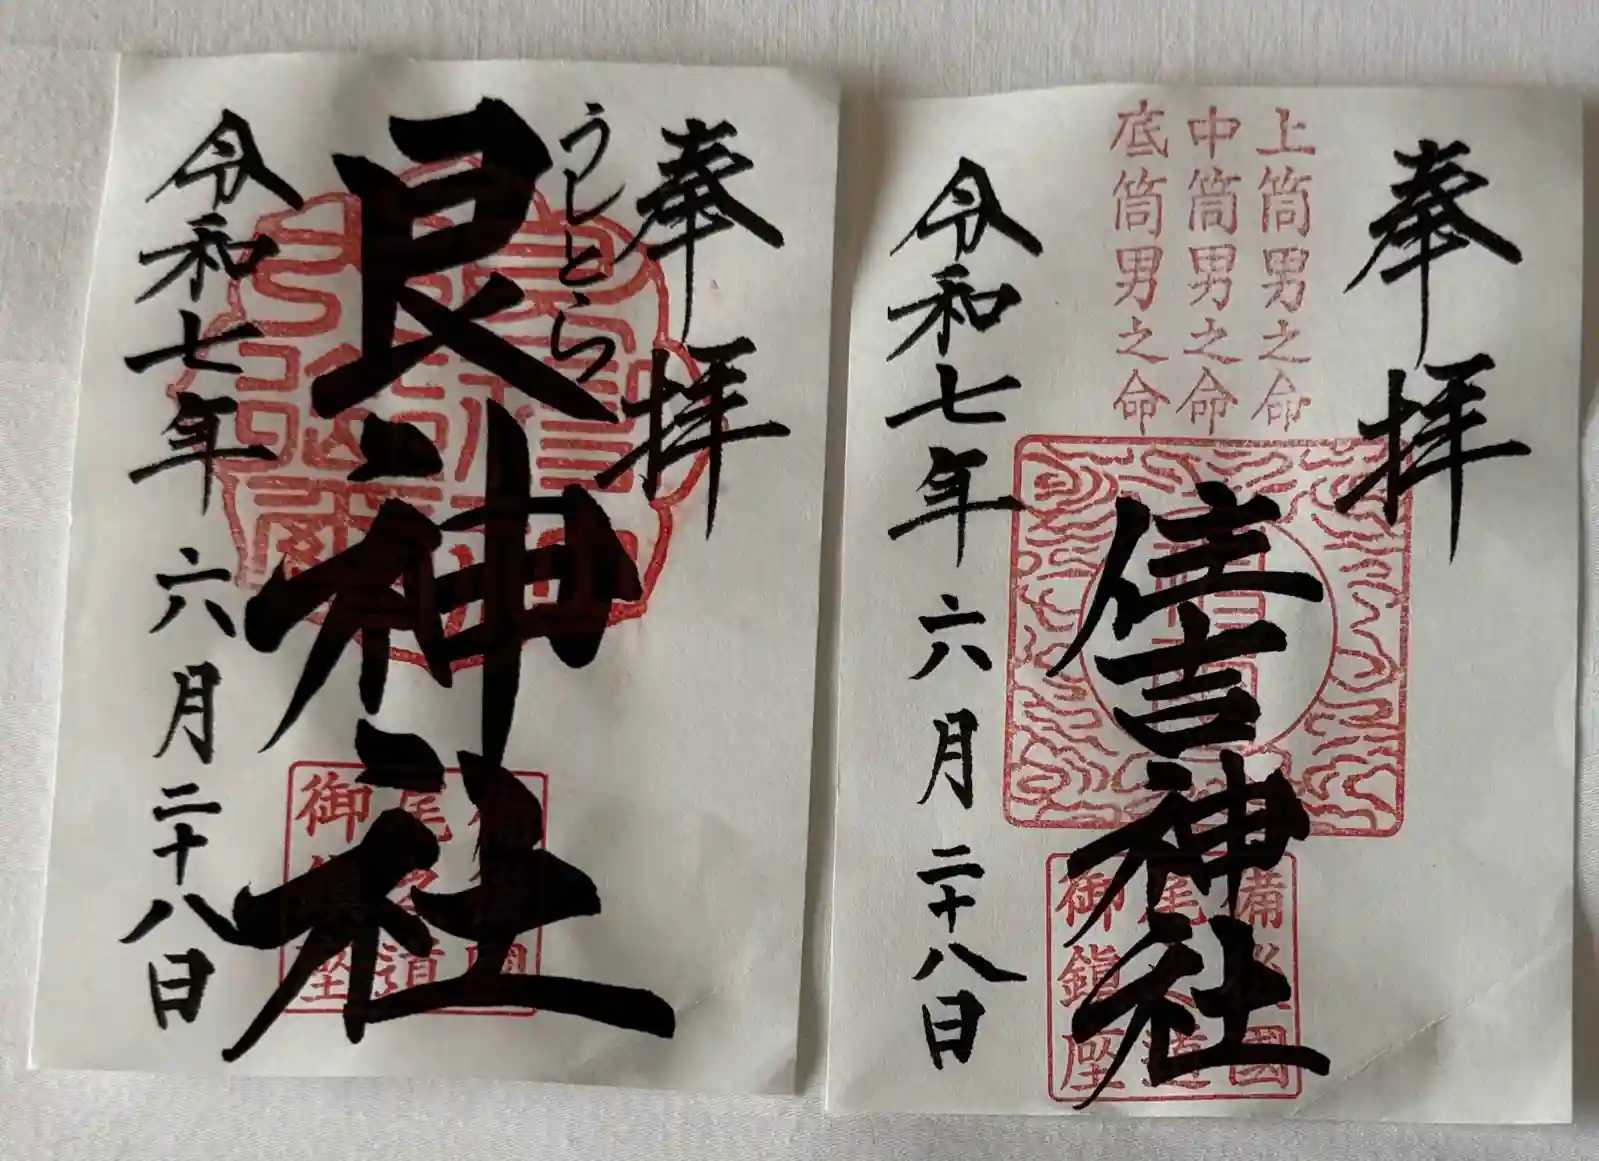 奉拝
うしとら
艮神社
令和七年六月二十八日
御鎮座
奉拝
上筒男之命
中筒男之命
底筒男之命
住吉神社
備後國
尾之道
御鎮座
令和七年六月二十八日